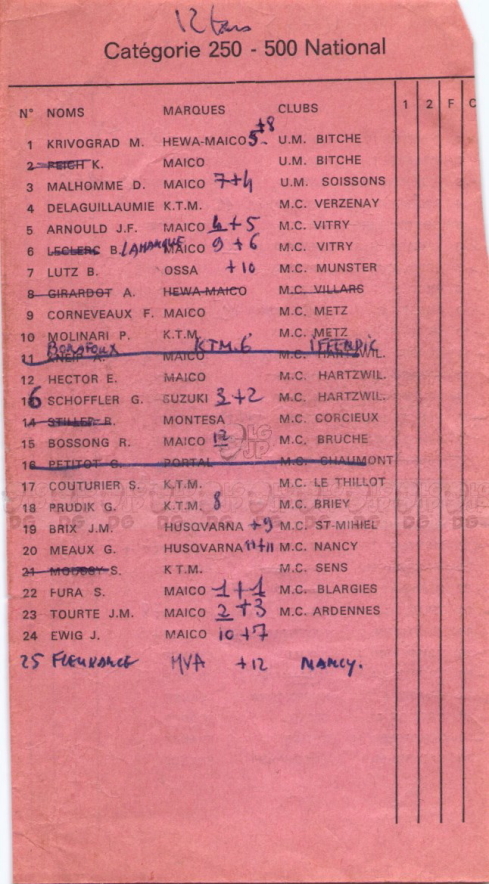 12 tours
Catégorie 250 - 500 National
N° NOMS MARQUES CLUBS 1 2 F C
+8
1 KRIVOGRAD M. HEWA-MAICO 5 U.M. BITCHE
2 REICH K. MAICO U.M. BITCHE
3 MALHOMME D. MAICO 7+4 U.M. SOISSONS
4 DELAGUILLAUMIE K.T.M. M.C. VERZENAY
5 ARNOULD J.F. MAICO 4+5 M.C. VITRY
6 LECLERC B. LAMARQUE MAICO 9+6 M.C. VITRY
7 LUTZ B. OSSA +10 M.C. MUNSTER
8 GIRARDOT A. HEWA-MAICO M.C. VILLARS
9 CORNEVEAUX F. MAICO M.C. METZ
10 MOLINARI P. K.T.M. M.C. METZ
KTM 6 IFFENDIC
11 MAICO M.C. HARTZWIL.
12 HECTOR E. MAICO M.C. HARTZWIL.
6 SCHOFFLER G. SUZUKI 3+2 M.C. HARTZWIL.
14 STILLER R. MONTESA M.C. CORCIEUX
15 BOSSONG R. MAICO 12 M.C. BRUCHE
16 PETITOT G. PORTAL M.C. CHAUMONT
17 COUTURIER S. K.T.M. M.C. LE THILLOT
18 PRUDIK G. K.T.M. 8 M.C. BRIEY
19 BRIX J.M. HUSQVARNA +9 M.C. ST-MIHIEL
20 MEAUX G. HUSQVARNA 11+11 M.C. NANCY
21 S. K.T.M. M.C. SENS
22 FURA S. MAICO 1+1 M.C. BLARGIES
23 TOURTE J.M. MAICO 2+3 M.C. ARDENNES
24 EWIG J. MAICO 10+7
25 FLEURANCE HVA +12 NANCY.